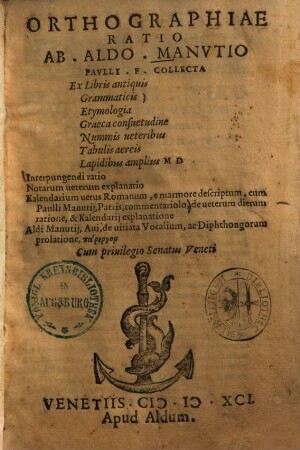 ORTHOGRAPHIAE
RATIO
AB . ALDO . MANVTIO
PAVLLI . F . COLLECTA
Ex Libris antiquis
Grammaticis
Etymologia
Graeca consuetudine
Nummis ueteribus
Tabulis aereis
Lapidibus amplius M D
Interpungendi ratio
Notarum ueterum explanatio
Kalendarium uetus Romanum, e marmore descriptum, cum
Paulli Manutij, Patris, commentariolo, de ueterum dierum
ratione, & Kalendarij explanatione
Aldi Manutij, Aui, de uitiata Vocalium, ac Diphthongorum
prolatione, πάρεργον
Cum priuilegio Senatus Veneti
KOENIGL. KREISBIBLIOTHEK
IN
AUGSBURG
VENETIIS . CIↃ . IↃ . XCI.
Apud Aldum.